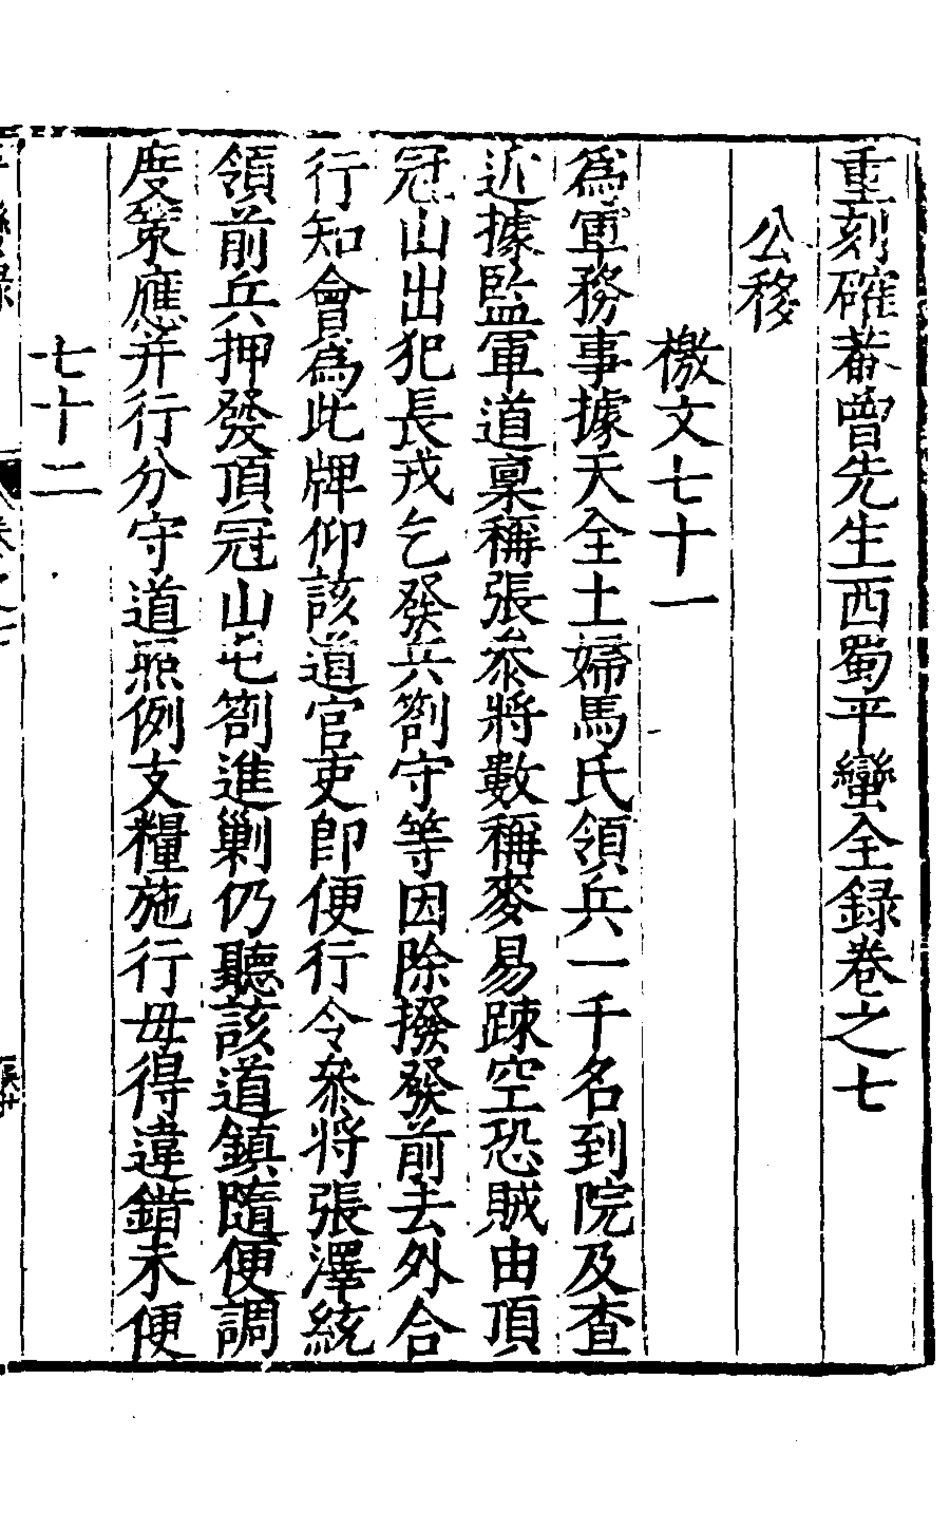 重刻確菴曾先生西蜀平蠻全録卷之七
公移
檄文七十一
為軍務事據天全土婦馬氏領兵一千名到院及査
近據監軍道稟稱張叅將數稱麥易踈空恐賊由頂
冠山出犯長戎乞發兵劄守等因除撥發前去外合
行知會為此牌仰該道官吏即便行令叅将張澤統
領前兵押發頂冠山屯劄進剿仍聽該道鎮隨便調
度策應并行分守道照例支糧施行毋得違錯未便
七十二